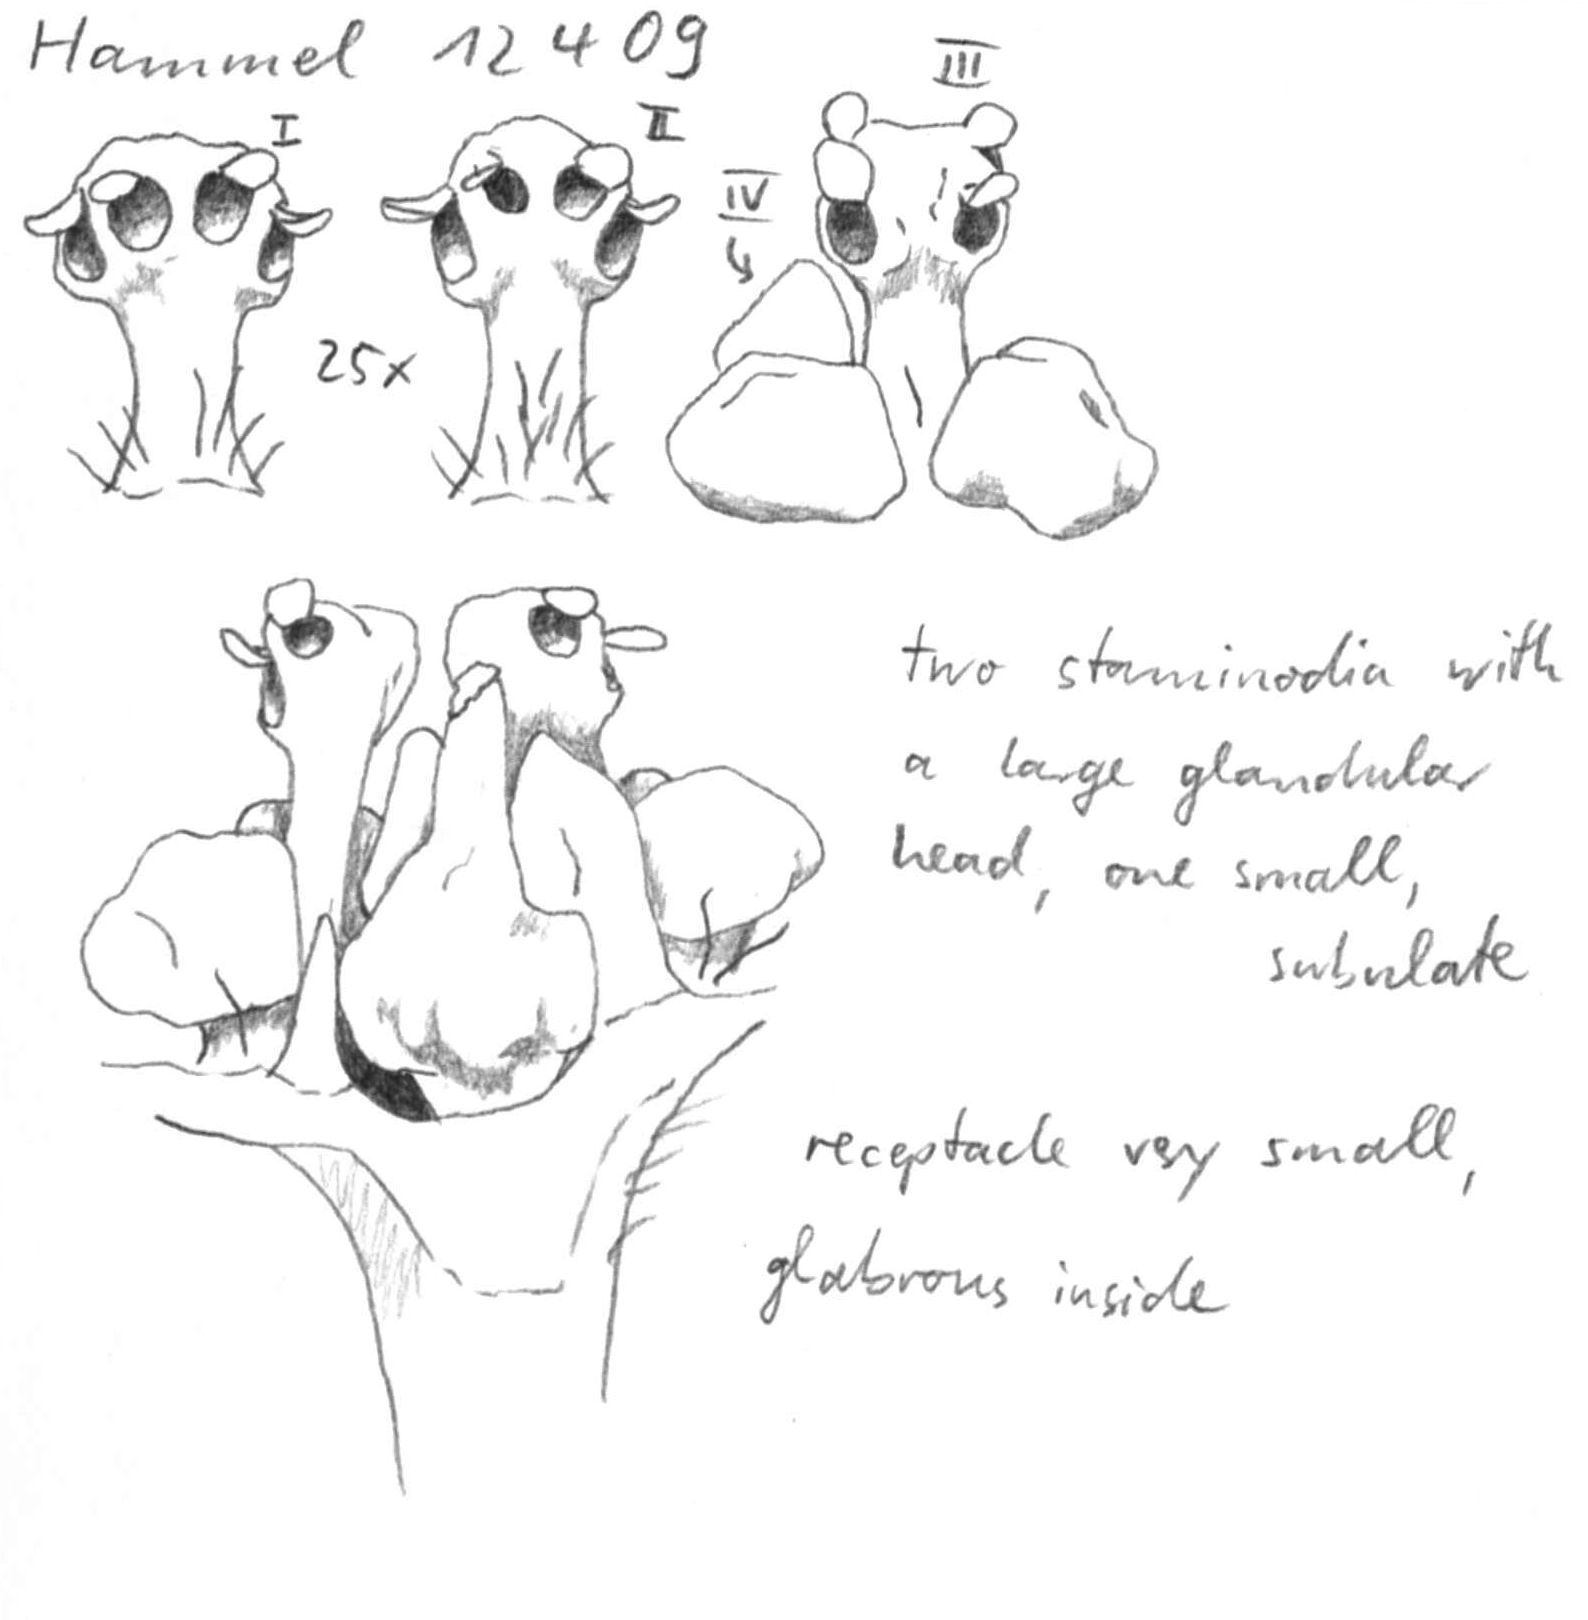 Hammel 12409
I
II
III
IV
25x
two staminodia with
a large glandular
head, one small,
subulate
receptacle very small,
glabrous inside